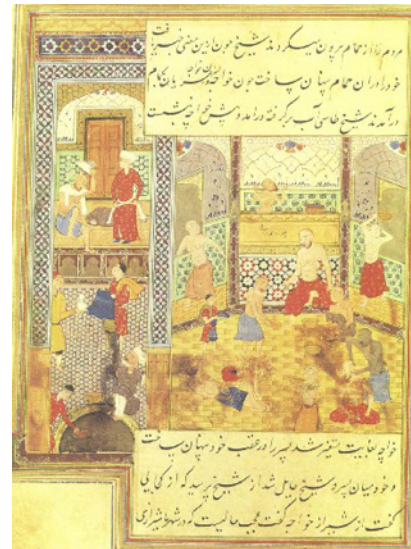 مردم را از حمام بیرون میکردند شیخ چون ازین معنی خبر یافت
خود را در آن حمام پنهان ساخت چون خواجه و حمام
درآمدند شیخ طاسی آب برگرفته درآمد و پیش خواجه بنشست
خواجه بغایت متغیر شد پسر را در عقب خود پنهان ساخت
و خود میان پسر و شیخ حایل شد از شیخ پرسید که از کجایی
گفت از شیراز خواجه گفت عجب حالیست که در شهر ما شیرازی